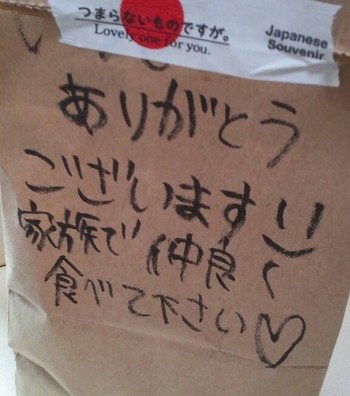 つまらないものですが。
Lovely one for you.
Japanese
Souvenir
ありがとう
ございます
家族で仲良く
食べて下さい♡